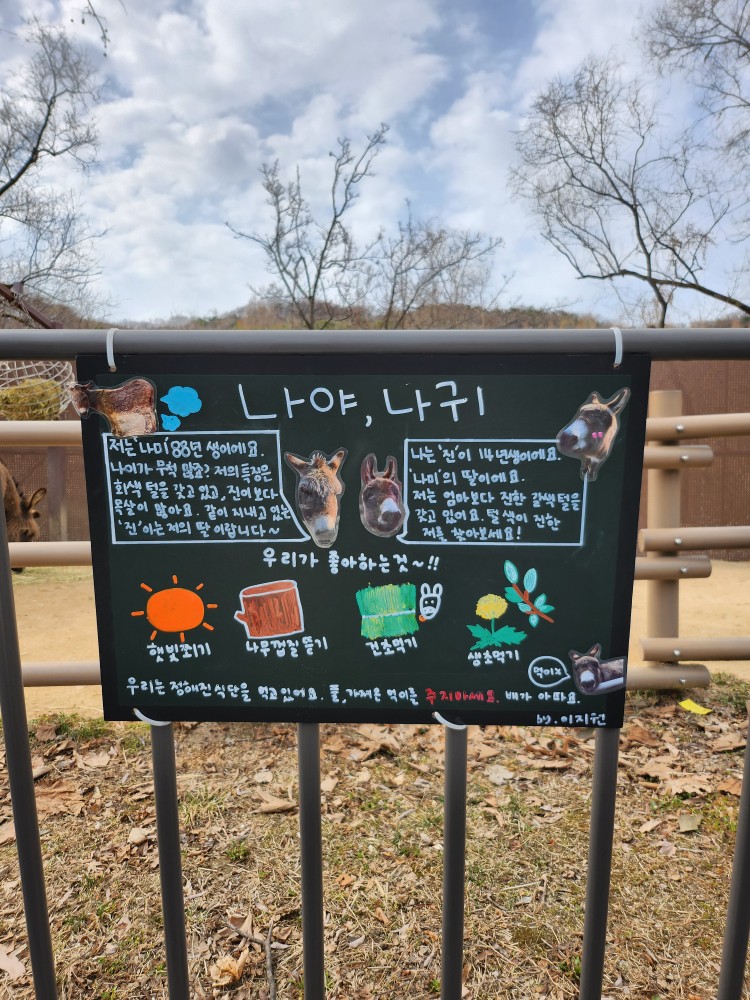 나야, 나귀
저는 '나미' 88년 생이에요.
나이가 무척 많죠? 저의 특징은
회색 털을 갖고 있고, 진이 보다
목살이 많아요. 같이 지내고 있는
'진'이는 저의 딸이랍니다~
나는 '진'이 14년생이에요.
'나미'의 딸이에요.
저는 엄마보다 진한 갈색 털을
갖고 있어요. 털 색이 진한
저를 찾아보세요!
우리가 좋아하는것~!!
햇빛쬐기
나무껍질 뜯기
건초먹기
생초먹기
먹이X
우리는 정해진식단을 먹고있어요. 풀, 가져온 먹이를 주지마세요. 배가 아파요.
by. 이지원